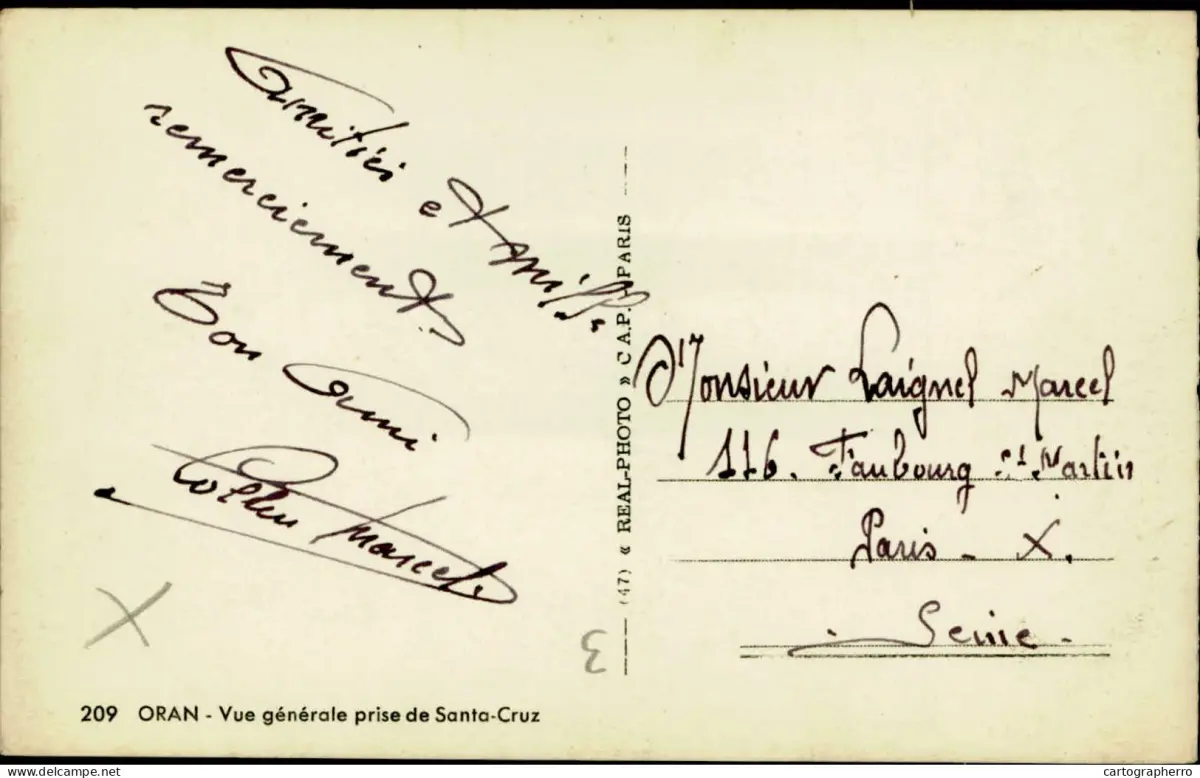 Amitiés et mille
remerciements.
Ton Ami
Marcel.
(47) « REAL-PHOTO » C.A.P. PARIS
Monsieur Laignel Marcel
116. Faubourg St Martin
Paris - X.
Seine -
3
209 ORAN - Vue générale prise de Santa-Cruz
delcampe.net
cartographerro